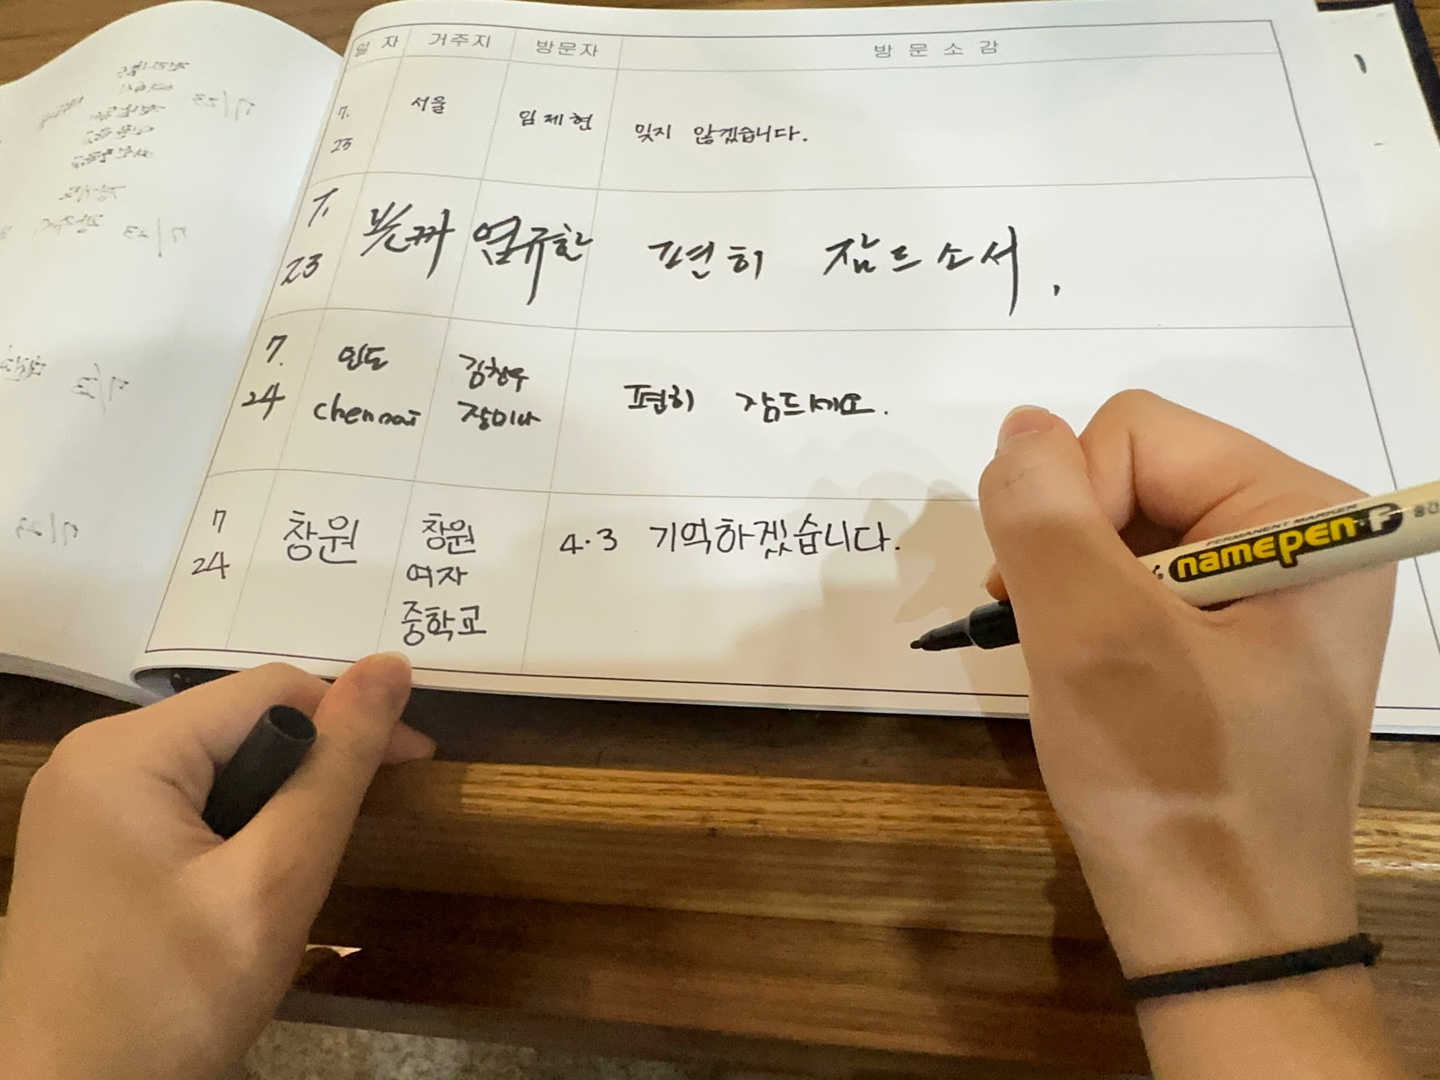 일 자 거주지 방문자 방 문 소 감
7. 서울 임제현 잊지 않겠습니다.
23
7. 엄규환 편히 잠드소서.
23
7. 인도 김창우 편히 잠드세요.
24 chennai 장미나
7 창원 창원 4.3 기억하겠습니다.
24 여자
중학교
PERMANENT MARKER
namepen·F